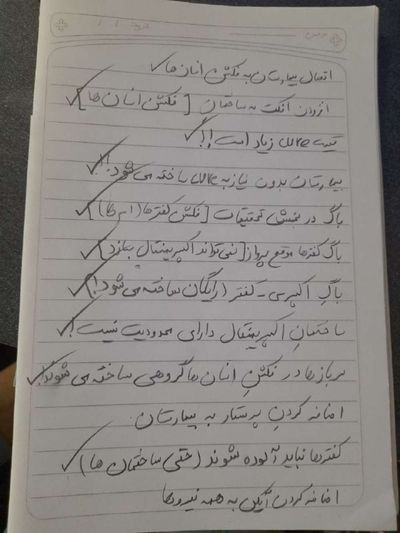 درس تاریخ / /
اتصال بیمارستان به فکشن انسان ها
افزودن افکت به ساختمان [فکشن انسان ها]
قیمت عالی زیاد است!!
بیمارستان بدون نیاز به ساخته می شود!!
باگ در بخش تحقیقات [فکشن کفترها (اس ها)]
باگ کفترها موقع پرواز [نمی تواند اکسپریمنتال بسازد]
باگ اکسپری - کفتر (رایگان ساخته می شود!)
ساختمان اکسپریمنتال دارای محدودیت نیست!
سربازها در فکشن انسان ها گروهی ساخته می شوند!
اضافه کردن پرستار به بیمارستان
کفترها نباید آلوده شوند (حتی ساختمان ها)
اضافه کردن آیکن به همه نیروها